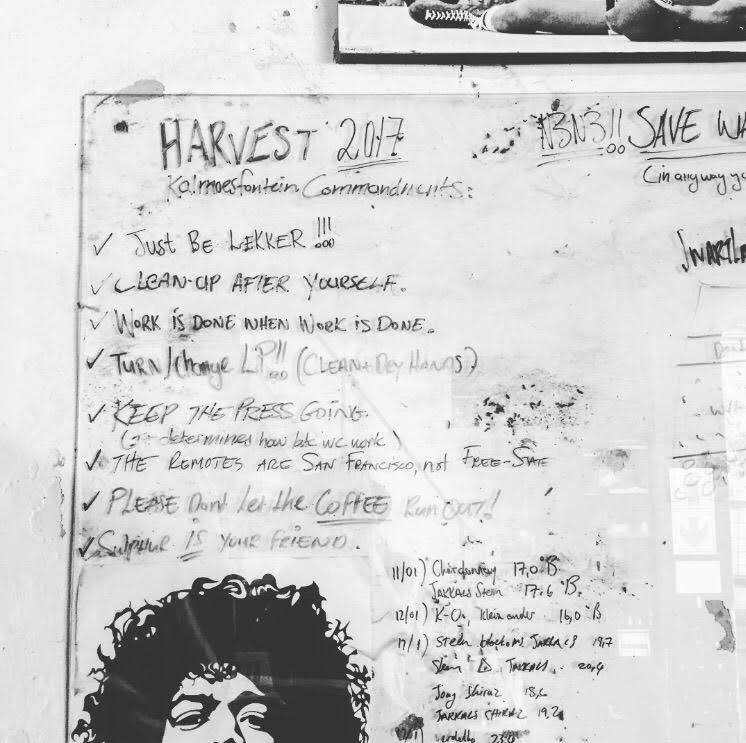 HARVEST 2017
Kalmoesfontein Commandments:
✓ JUST BE LEKKER!!!
✓ CLEAN-UP AFTER YOURSELF.
✓ WORK IS DONE WHEN WORK IS DONE.
✓ TURN/Change LP!! (CLEAN + DRY HANDS)
✓ KEEP THE PRESS GOING.
determines how we work)
✓ THE REMOTES ARE SAN FRANCISCO, not FREE-STATE
✓ PLEASE Dont let the COFFEE Run OUT!
✓ SULPHUR IS YOUR FRIEND.
N3N3!! SAVE
(in any way
11/01) Chardonnay 17,0 °B
JAKKALS Stein 17.6 °B.
12/01) K-O, Klein 16,0 °B
17/1) Steen JAKKALS 19,7
JAKKALS 20,4
Jong Shiraz 18,6
JAKKALS SHIRAZ 19,2